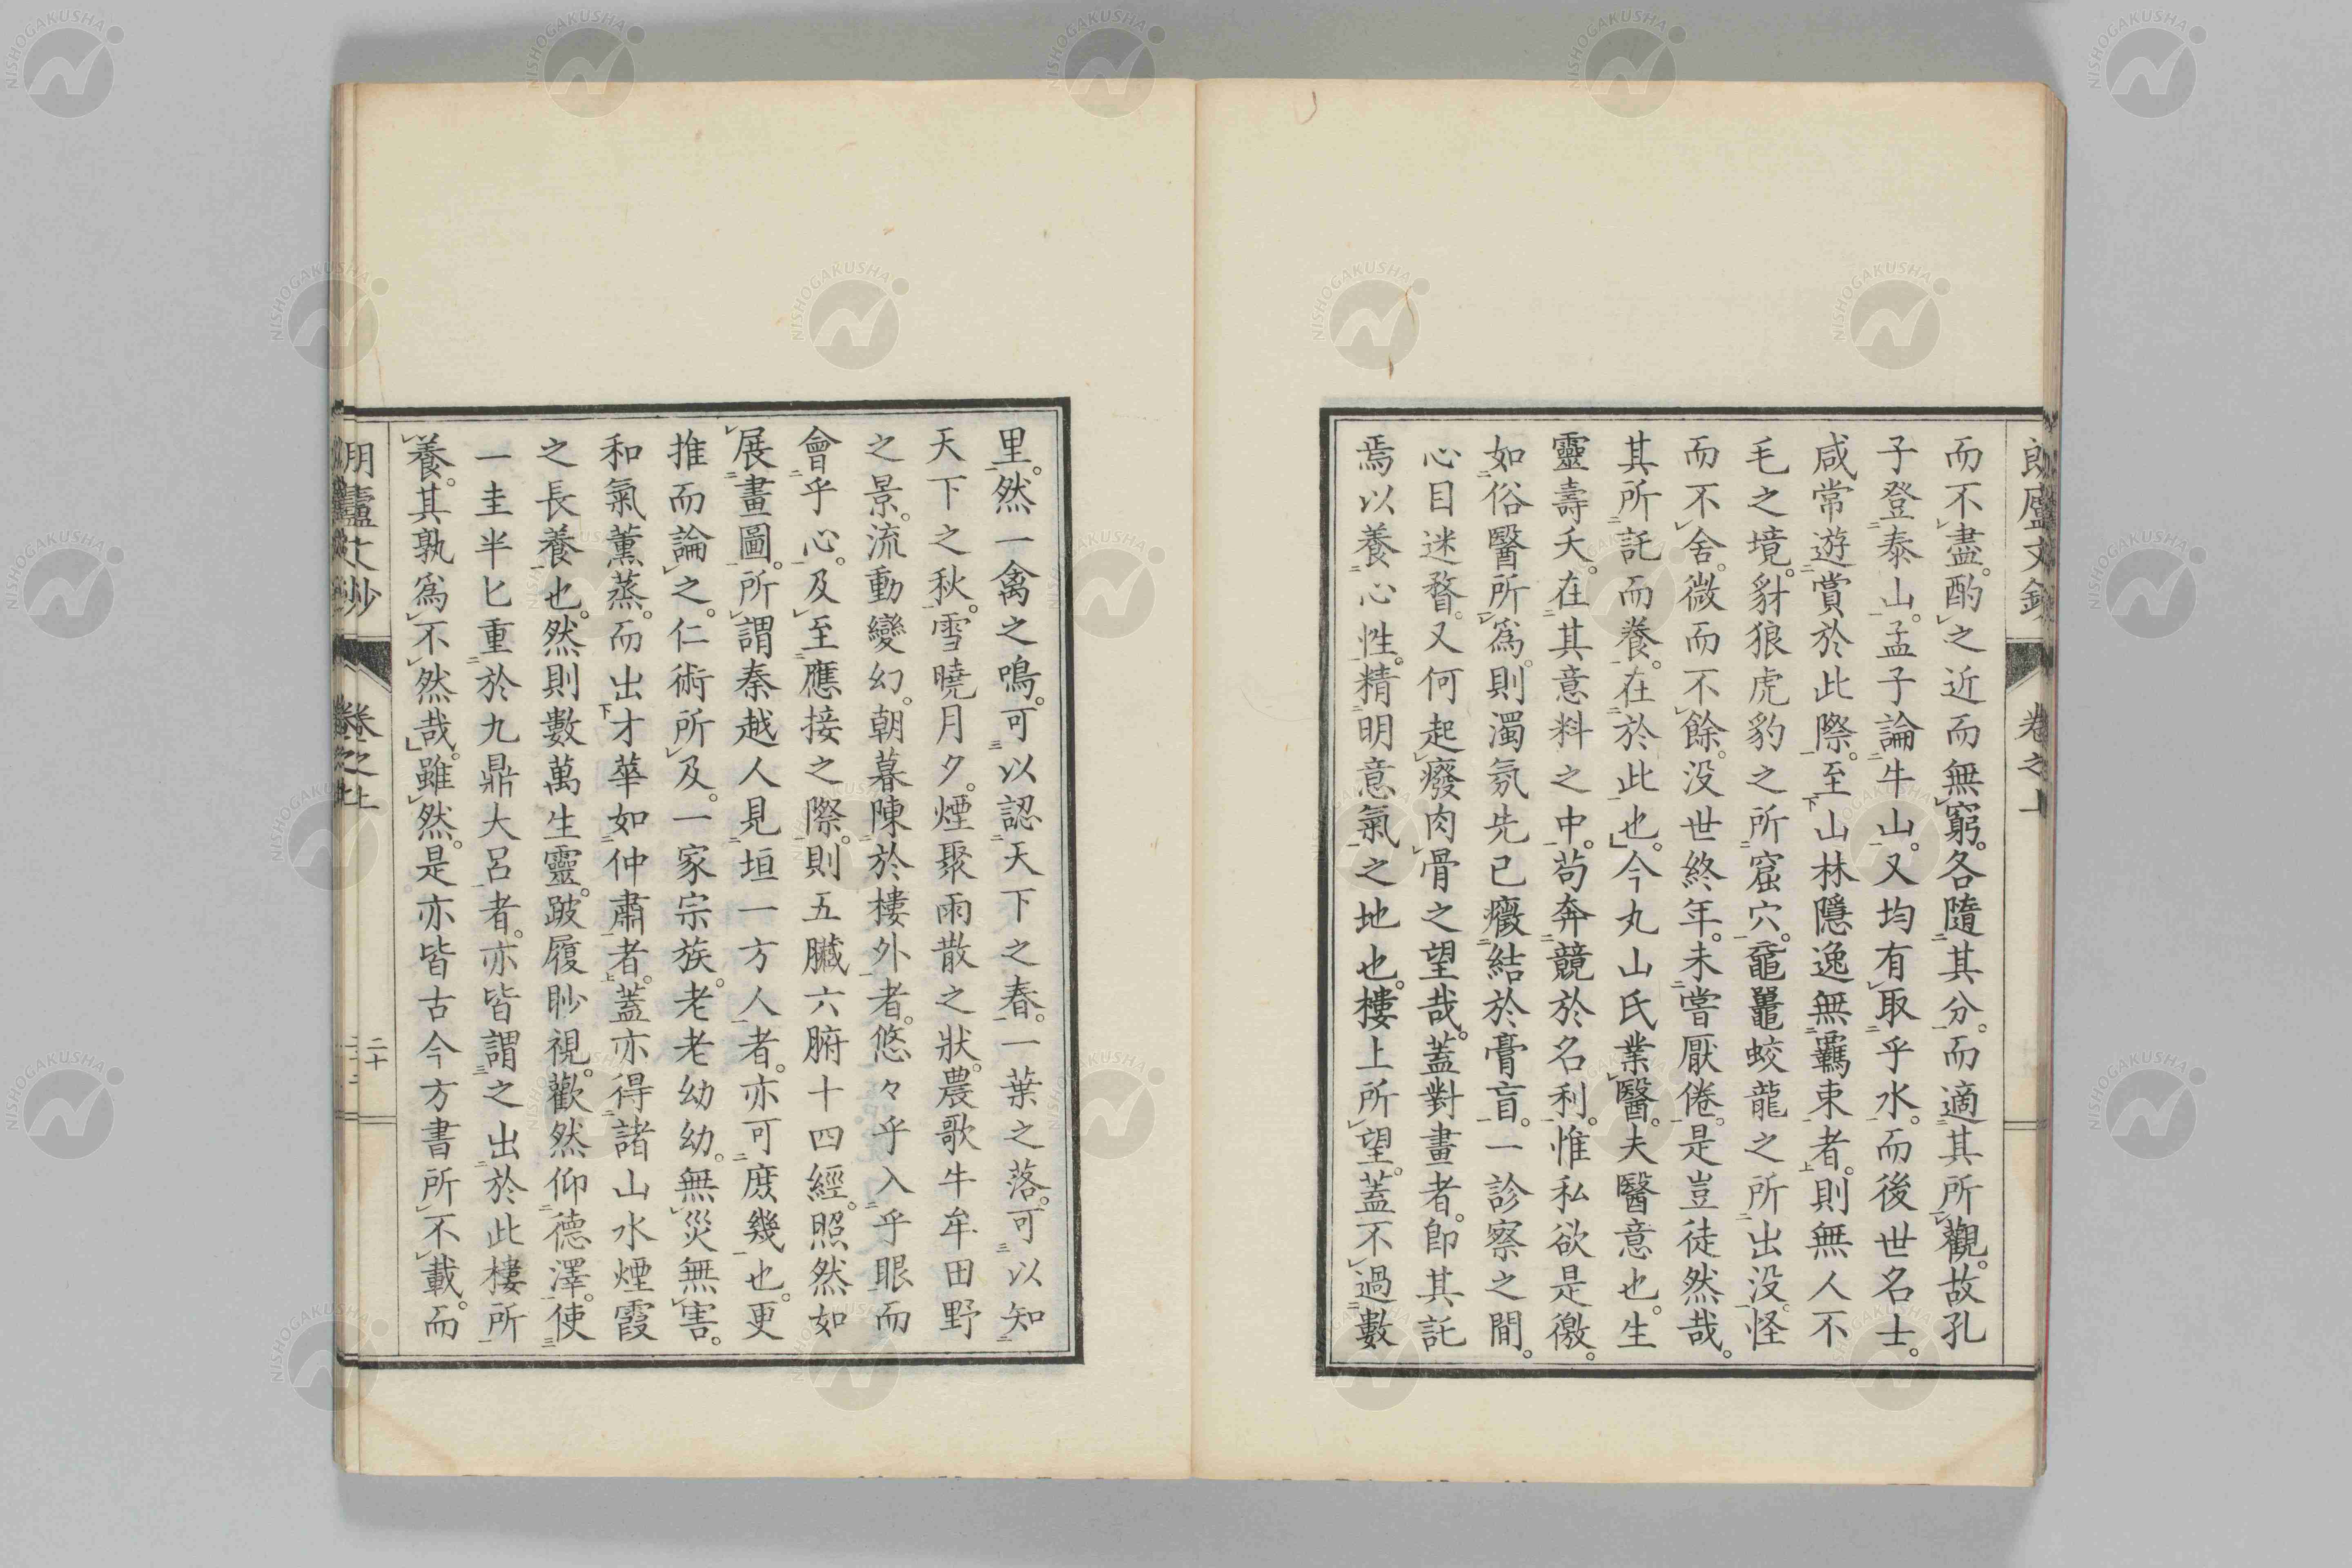 朗廬文鈔　卷之上
而不盡。酌之近而無窮。各隨其分。而適其所觀。故孔
子登泰山。孟子論牛山。又均有取乎水。而後世名士。
咸常遊賞於此際。至山林隱逸無羈束者。則無人不
毛之境。豺狼虎豹之所窟穴。黿鼉蛟龍之所出没。怪
而不舍。微而不餘。没世終年。未嘗厭倦。是豈徒然哉。
其所託而養。在於此也。今丸山氏業醫。夫醫意也。生
靈壽夭。在其意料之中。苟奔競於名利。惟私欲是徼。
如俗醫所爲。則濁氛先已癥結於膏肓。一診察之間。
心目迷瞀。又何起癈肉骨之望哉。蓋對畫者。卽其託
焉以養心性。精明意氣之地也。樓上所望。蓋不過數
里。然一禽之鳴。可以認天下之春。一葉之落。可以知
天下之秋。雪曉月夕。煙聚雨散之狀。農歌牛牟田野
之景。流動變幻。朝暮陳於樓外者。悠々乎入乎眼而
會乎心。及至應接之際。則五臟六腑十四經。照然如
展畫圖。所謂秦越人見垣一方人者。亦可庶幾也。更
推而論之。仁術所及。一家宗族。老老幼幼。無災無害。
和氣薰蒸。而出才華如仲肅者。蓋亦得諸山水煙霞
之長養也。然則數萬生靈。跛履眇視。歡然仰德澤。使
一圭半匕重於九鼎大呂者。亦皆謂之出於此樓所
養。其孰爲不然哉。雖然。是亦皆古今方書所不載。而
朗廬文鈔　卷之上　二十
NISHOGAKUSHA